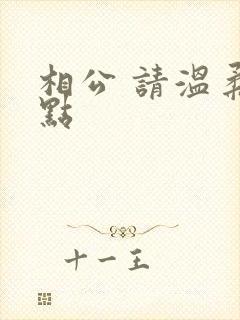 相公 請溫柔
點
十一王